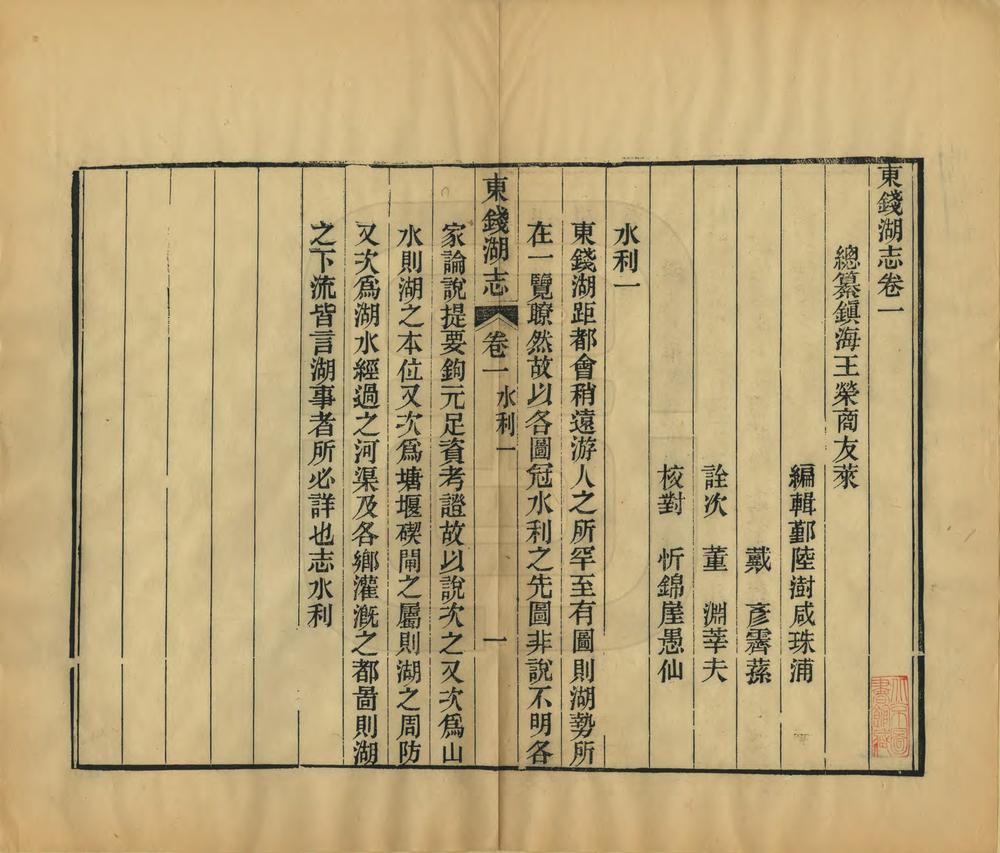 東錢湖志卷一
總纂鎭海王榮商友萊
編輯鄞陸澍咸珠浦
戴　彥霽蓀
詮次　董　淵莘夫
核對　忻錦崖愚仙
水利一
東錢湖距都會稍遠游人之所罕至有圖則湖勢所
在一覽瞭然故以各圖冠水利之先圖非說不明各
東錢湖志　卷一　水利一　一
家論說提要鉤元足資考證故以說次之又次爲山
水則湖之本位又次爲塘堰碶閘之屬則湖之周防
又次爲湖水經過之河渠及各鄉灌漑之都啚則湖
之下流皆言湖事者所必詳也志水利